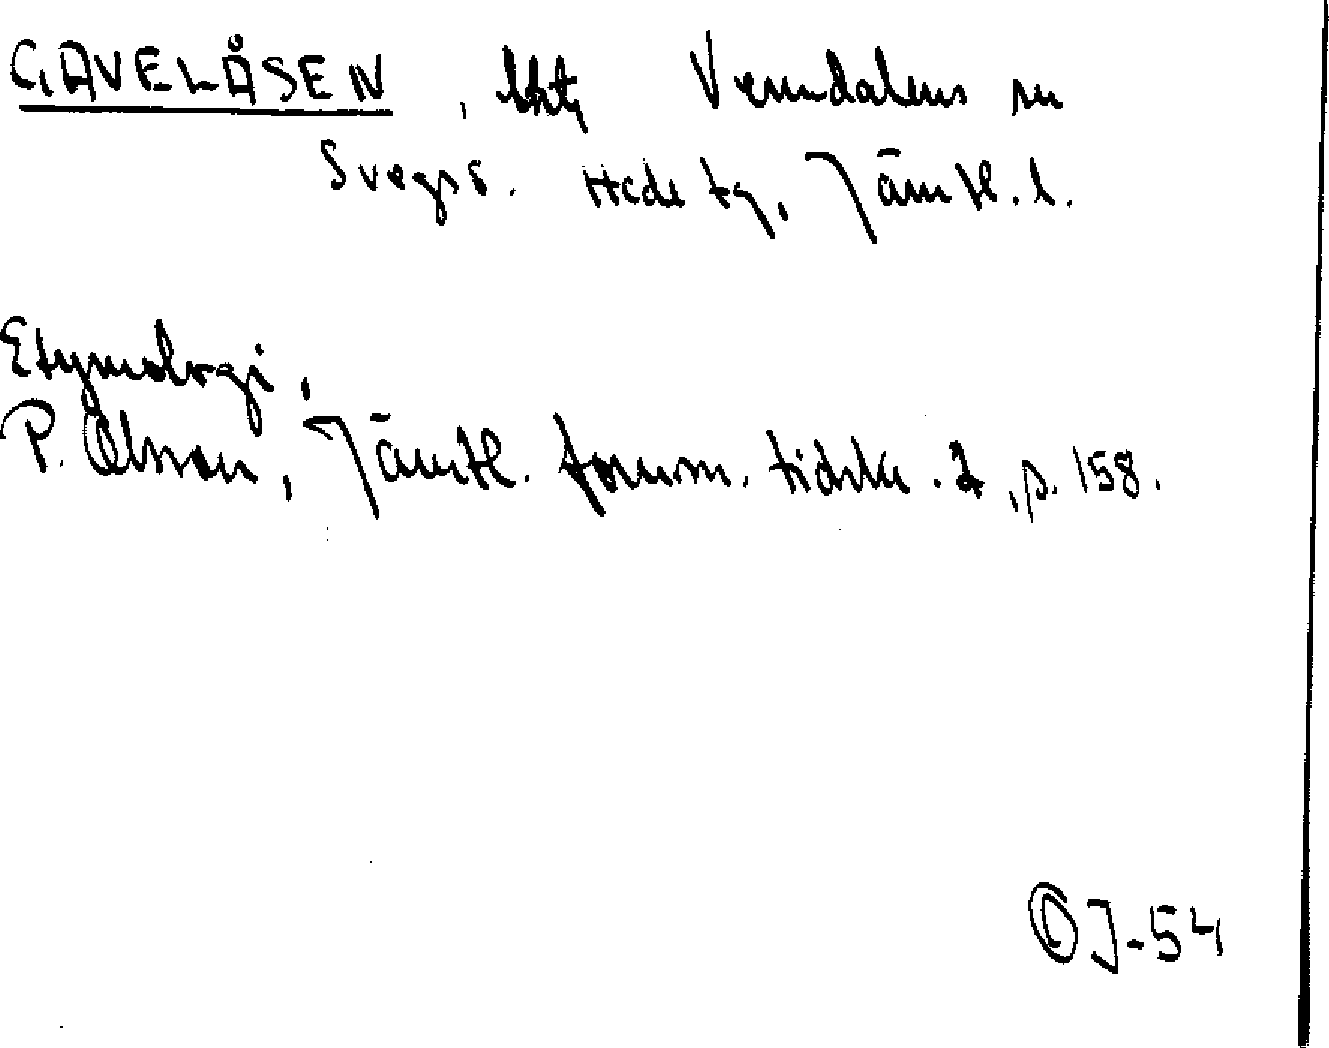 GAVELÅSEN, bkt, Vemdalens sn
Svegs s. Hede tg, Jämtl. l.
Etymologi,
P. Olsson, Jämtl. fornm. tidskr. 2, p. 158.
OJ-54